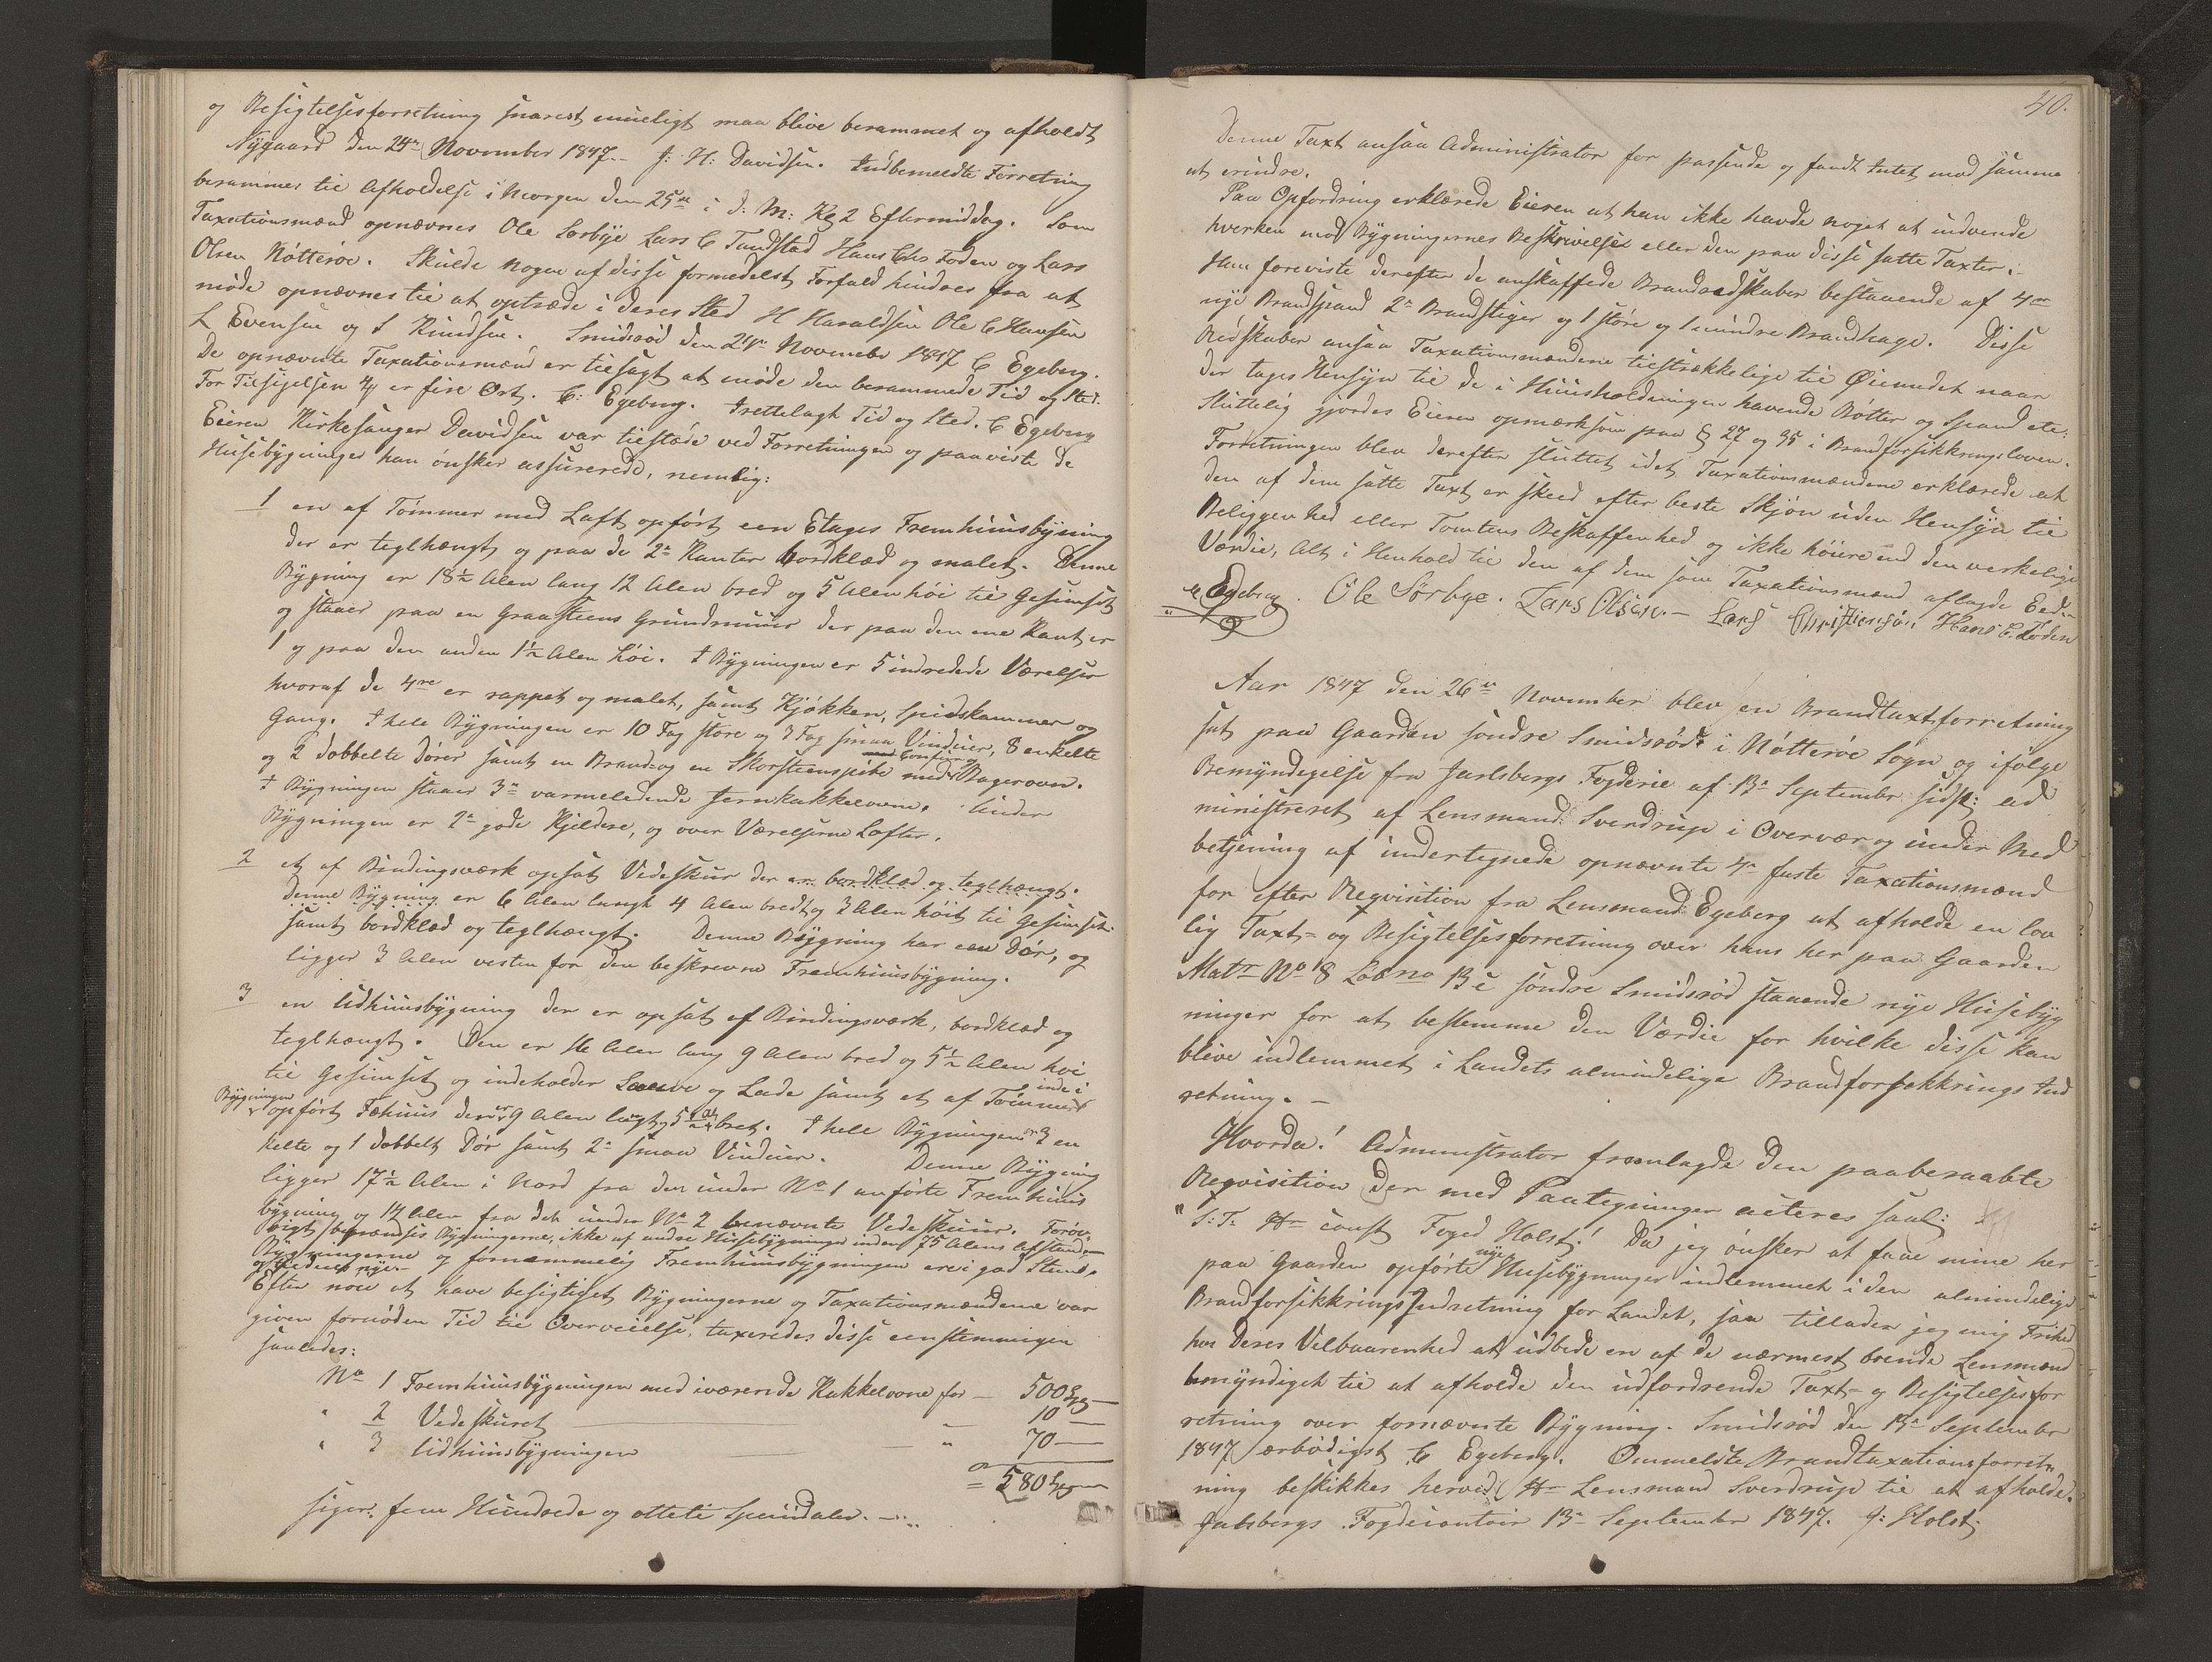 og Besigtelsesforretning snarest mueligt maa blive berammet og afholdt
Nygaard den 24de November 1847.- J: H: Davidsen. Indbemeldte Forretning
berammes til Afholdelse i Morgen den 25de i d: M: Kl 2 Eftermiddag. Som
Taxationsmænd opnævnes Ole Sørbye Lars C Tandstad Hans Chr Foden og Lars
Olsen Nøtterøe. Skulde nogen af disse formedelst Forfald hindres fra at
møde opnævnes til at optræde i deres Sted H Haraldsen Ole C Hansen
L Evensen og S Knudsen. Smidsrød den 24de November 1847 C Egeberg.
De opnævnte Taxationsmænd er tilsagt at møde den berammede Tid og Sted.
For Tilsigelsen er fire Ort. C: Egeberg. Irettelagt Tid og Sted. C Egeberg
Eieren Kirkesanger Davidsen var tilstæde ved Forretningen og paaviste de
Husebygninger han ønsker assurerede, nemlig:
1 en af Tømmer med Laft opført een Etages Fremhuusbygning
der er teglhængt og paa de 2de Kanter bordklæd og malet. Denne
Bygning er 18½ Alen lang 12 Alen bred og 5 Alen høi til Gesimset
og staaer paa en Graasteens Grundmuur der paa den ene Kant er
1 og paa den anden 1½ Alen høi. I Bygningen er 5 indredede Værelser
hvoraf de 4re er rappet og malet, samt Kjøkken, Spidskammer og
Gang. I hele Bygningen er 10 Fag store og 3 Fag smaa Vinduer, 8 enkelte
og 2 dobbelte Dører samt en Brand- og en Skorsteenspibe med Bagerovn.
I Bygningen staaer 3de varmeledende Jernkakkelovne. Under
Bygningen er 2de gode Kjeldere, og over Værelserne Lofter.
2 et af Bindingsværk opsat Vedeskur der er bordklæd og teglhængt.
Denne Bygning er 6 Alen langt 4 Alen bredt og 3 Alen høit til Gesimset
samt bordklæd og teglhængt. Denne Bygning har een Dør, og
ligger 3 Alen vesten for den beskrevne Fremhuusbygning.
3 en Udhuusbygning der er opsat af Bindingsværk, bordklæd og
teglhængt. Den er Alen lang 9 Alen bred og 5½ Alen høi
til Gesimset og indeholder Laave og Lade samt et af Tømmer inde i
Bygningen opført Fæhuus der er 9 Alen langt og 5½ Al bret. I hele Bygningen er 3 en
kelte og 1 dobbelt Dør samt 2de smaa Vinduer. Denne Bygning
ligger 17½ Alen i Nord fra den under No 1 anførte Fremhuus
bygning og 14 Alen fra det under No 2 benævnte Vedeskuur. Forøv
rigt begrændses Bygningerne ikke af andre Husebygninger inden 75 Alens Afstand
Bygningerne og fornemmelig Fremhuusbygningen er i god Stand,
og tildeels nye.
Efter nøie at have besigtiget Bygningerne og Taxationsmændene var
given fornøden Tid til Overveielse, taxeredes disse eenstemmigen
saaledes:
No 1 Fremhuusbygningen med iværende Kakkelovne for — 500 Spd —
" 2 Vedeskuret — " 10 —
" 3 Udhuusbygningen — " 70 —
= 580 Spd
siger: fem Hundrede og otteti Speciedaler. —
40.
Denne Taxt ansaa Administrator for passende og fandt Intet mod samme
at erindre.
Paa Opfordring erklærede Eieren at han ikke havde noget at indvende
hverken mod Bygningernes Beskrivelse eller den paa disse satte Taxter.-
Han foreviste derefter de anskaffede Brandredskaber bestaaende af 4re
nye Brandspand 2de Brandstiger og 1 støre og 1 mindre Brandhage. Disse
Redskaber ansaa Taxationsmændene tilstrækkelige til Øiemedet naar
der tages Hensyn til de i Huusholdningen havende Bøtter og Spand etc:
Sluttelig gjordes Eieren opmærksom paa § 27 og 35 i Brandforsikkringsloven.
Forretningen blev derefter sluttet idet Taxationsmændene erklærede at
den af dem satte Taxt er skeed efter beste Skjøn uden Hensyn til
Beliggenhed eller Tomtens Beskaffenhed og ikke høiere end den verkelige
Værdie, Alt i Henhold til den af dem som Taxationsmænd aflagde Eed.-
C Egeberg. Ole Sørbye. Lars Olsen.- Lars Christiensøn Hans C. Foden
Aar 1847 den 26de November blev en Brandtaxtforretning
sat paa Gaarden søndre Smidsrød i Nøtterøe Sogn og ifølge
Bemyndigelse fra Jarlsbergs Fogderie af 13de September sidst; ad
ministreret af Lensmand Sverdrup i Overvær og under Med
betjening af undertegnede opnævnte 4re faste Taxationsmænd
for efter Reqvisition fra Lensmand Egeberg at afholde en lov
lig Taxt- og Besigtelsesforretning over hans her paa Gaarden
Matr No 8 Løb no 13 i søndre Smidsrød staaende nye Husebyg
ninger for at bestemme den Værdie for hvilke disse kan
blive indlemmet i Landets almindelige Brandforsikkrings Ind
retning. —
Hvorda! Administrator fremlagde den paaberaabte
Reqvisition der med Paategninger acteres saal:
"S: T. Hr const Foged Holst! Da jeg ønsker at faae mine her
paa Gaarden opførte nye Husebygninger indlemmet i den almindelige
Brandforsikkrings Indretning for Landet, saa tillader jeg mig Frihed
hos Deres Velbaarenhed at udbede en af de nærmest boende Lensmænd
bemyndiget til at afholde den udfordrende Taxt- og Besigtelsesfor
retning over fornævnte Bygning. Smidsrød den 13de September
1847 ærbødigst C Egeberg. Ommeldte Brandtaxationsforret
ning beskikkes herved Hr Lensmand Sverdrup til at afholde.
Jarlsbergs Fogdecontoir 13de September 1847. J: Holst